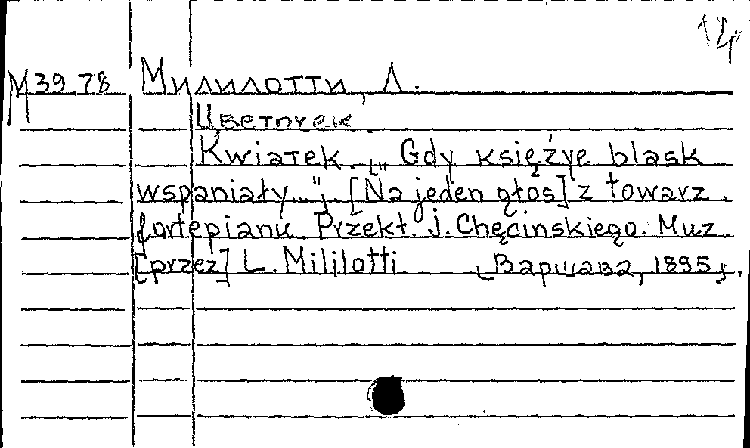 12
М 39 78 Милилотти, Л.
Цветочек
Kwiatek. [„Gdy księżyc blask
wspaniały..."]. [Na jeden głos] z towarz.
fortepianu. Przekł. J. Chęcinskiego. Muz.
[przez] L. Mililotti [Варшава, 1895].